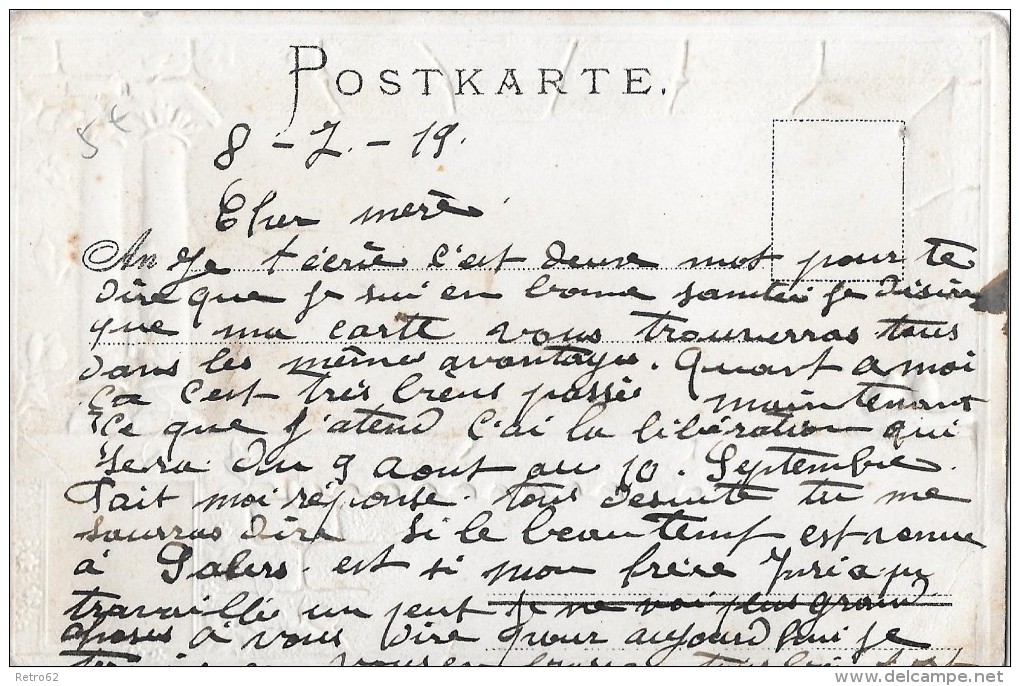 POSTKARTE.
5 €
8 - 7. - 19.
Cher mère
An Je t écrie c'est deuse mot pour te
dire que je sui en bonne santée je désire
que ma carte vous trouverras tous
dans les même avantages. Quant a moi
ça c'est très biens passée maintenant
ce que j'atend c'ai la libération qui
sera du 9 Aout au 10. Septembre.
Fait moi réponse tous desuite tu me
saurras dire si le beau temps est venue
à Salers est si mon frère a pu
travaillé un peut je ne voi plus grand
choses à vous dire pour aujourd'hui je
vous en
Retro62
delcampe.net